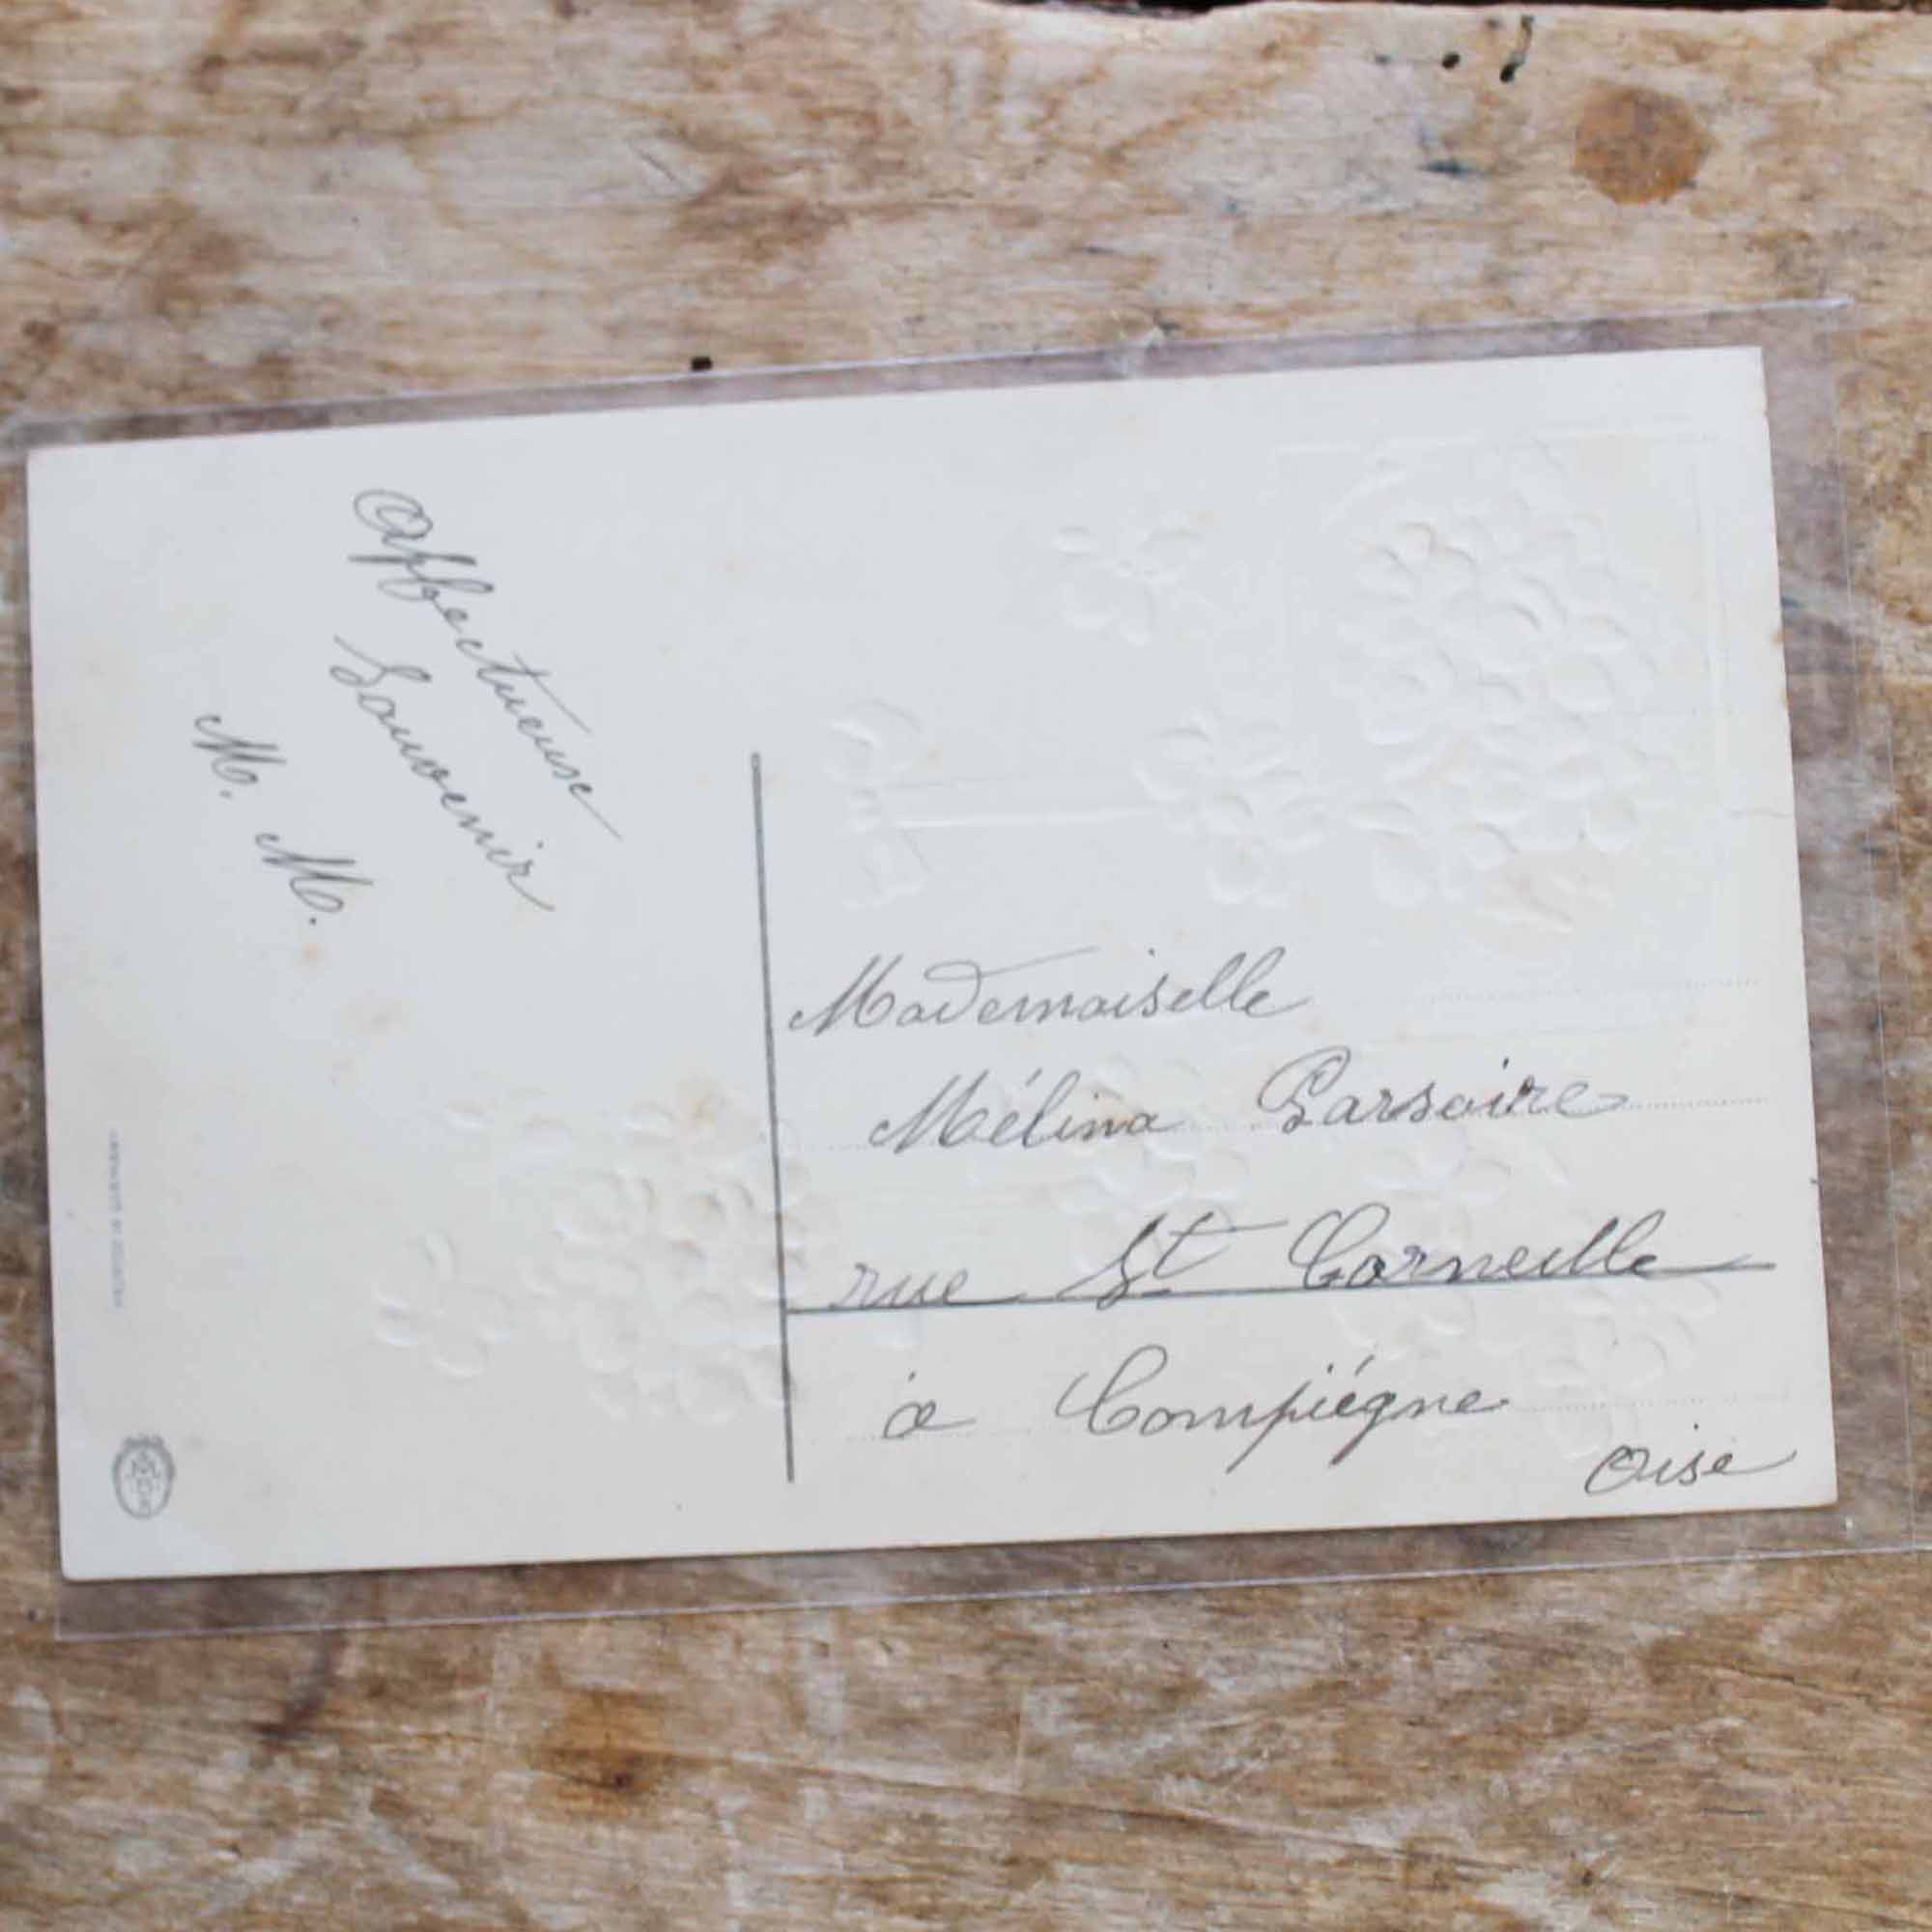 Affectueuse
Souvenir
M. M.
Mademoiselle
Mélina Parsoire
rue St Corneille
à Compiégne
Oise